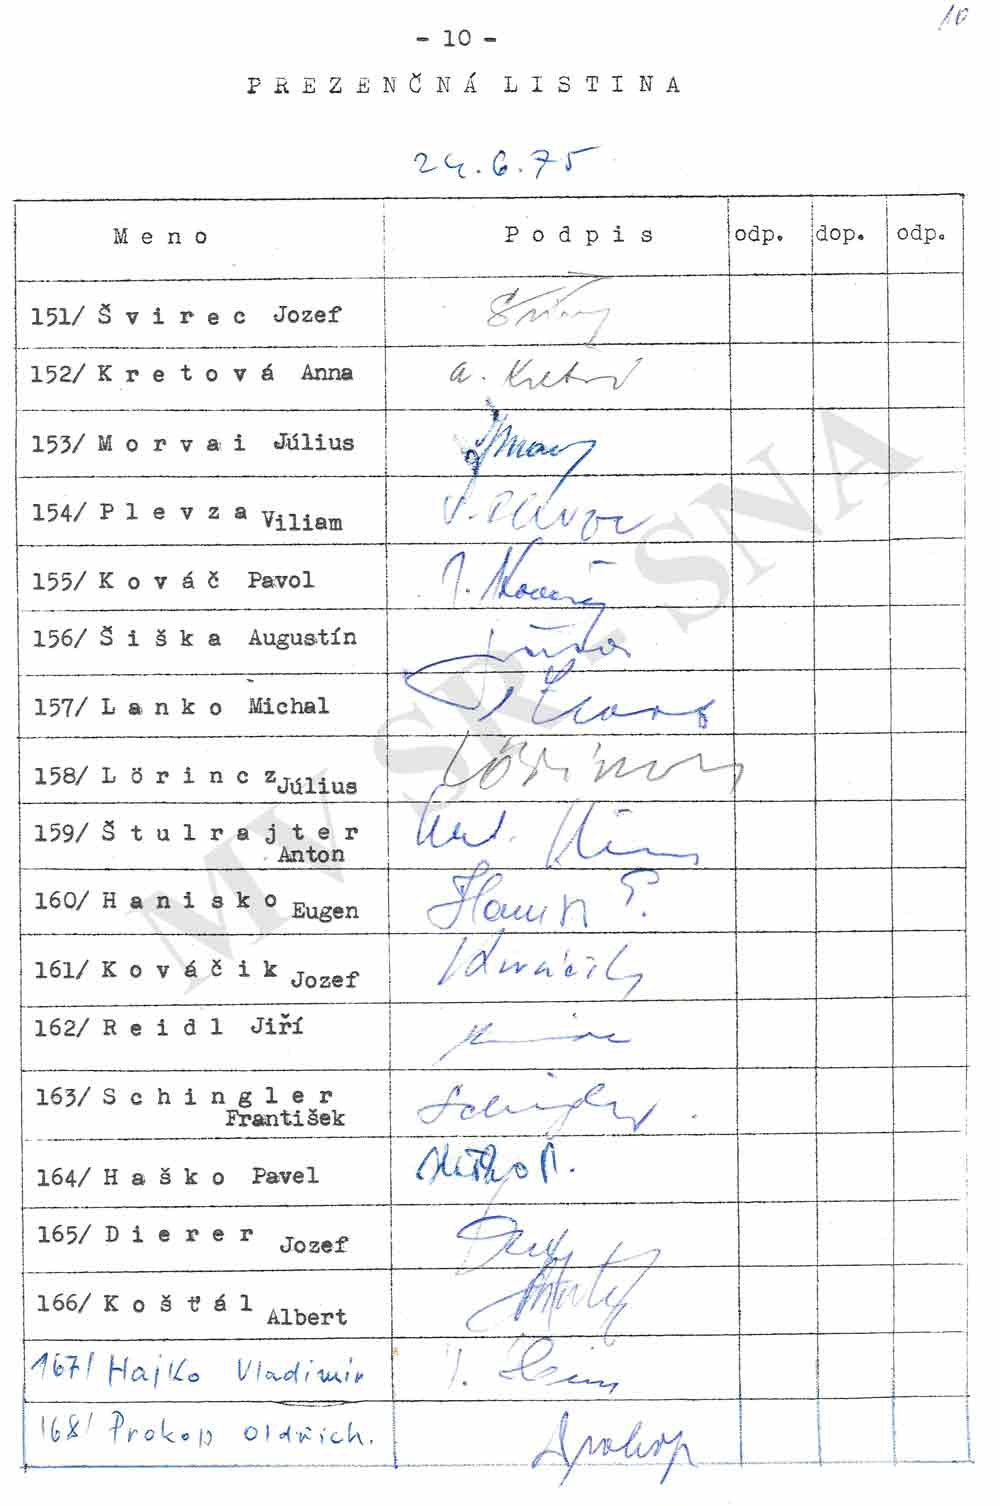 10
- 10 -
PREZENČNÁ LISTINA
24.6.75
Meno Podpis odp. dop. odp.
151/ Švirec Jozef
152/ Kretová Anna a. Kretová
153/ Morvai Július
154/ Plevza Viliam
155/ Kováč Pavol
156/ Šiška Augustín
157/ Lanko Michal
158/ Lörincz Július Lörincz
159/ Štulrajter
Anton
160/ Hanisko Eugen
161/ Kováčik Jozef Kováčik
162/ Reidl Jiří
163/ Schingler Schingler
František
164/ Haško Pavel Haško P.
165/ Dierer Jozef
166/ Košťál Albert
167/ Hajko Vladimír
168/ Prokop Oldřich. Prokop
MV SR - SNA